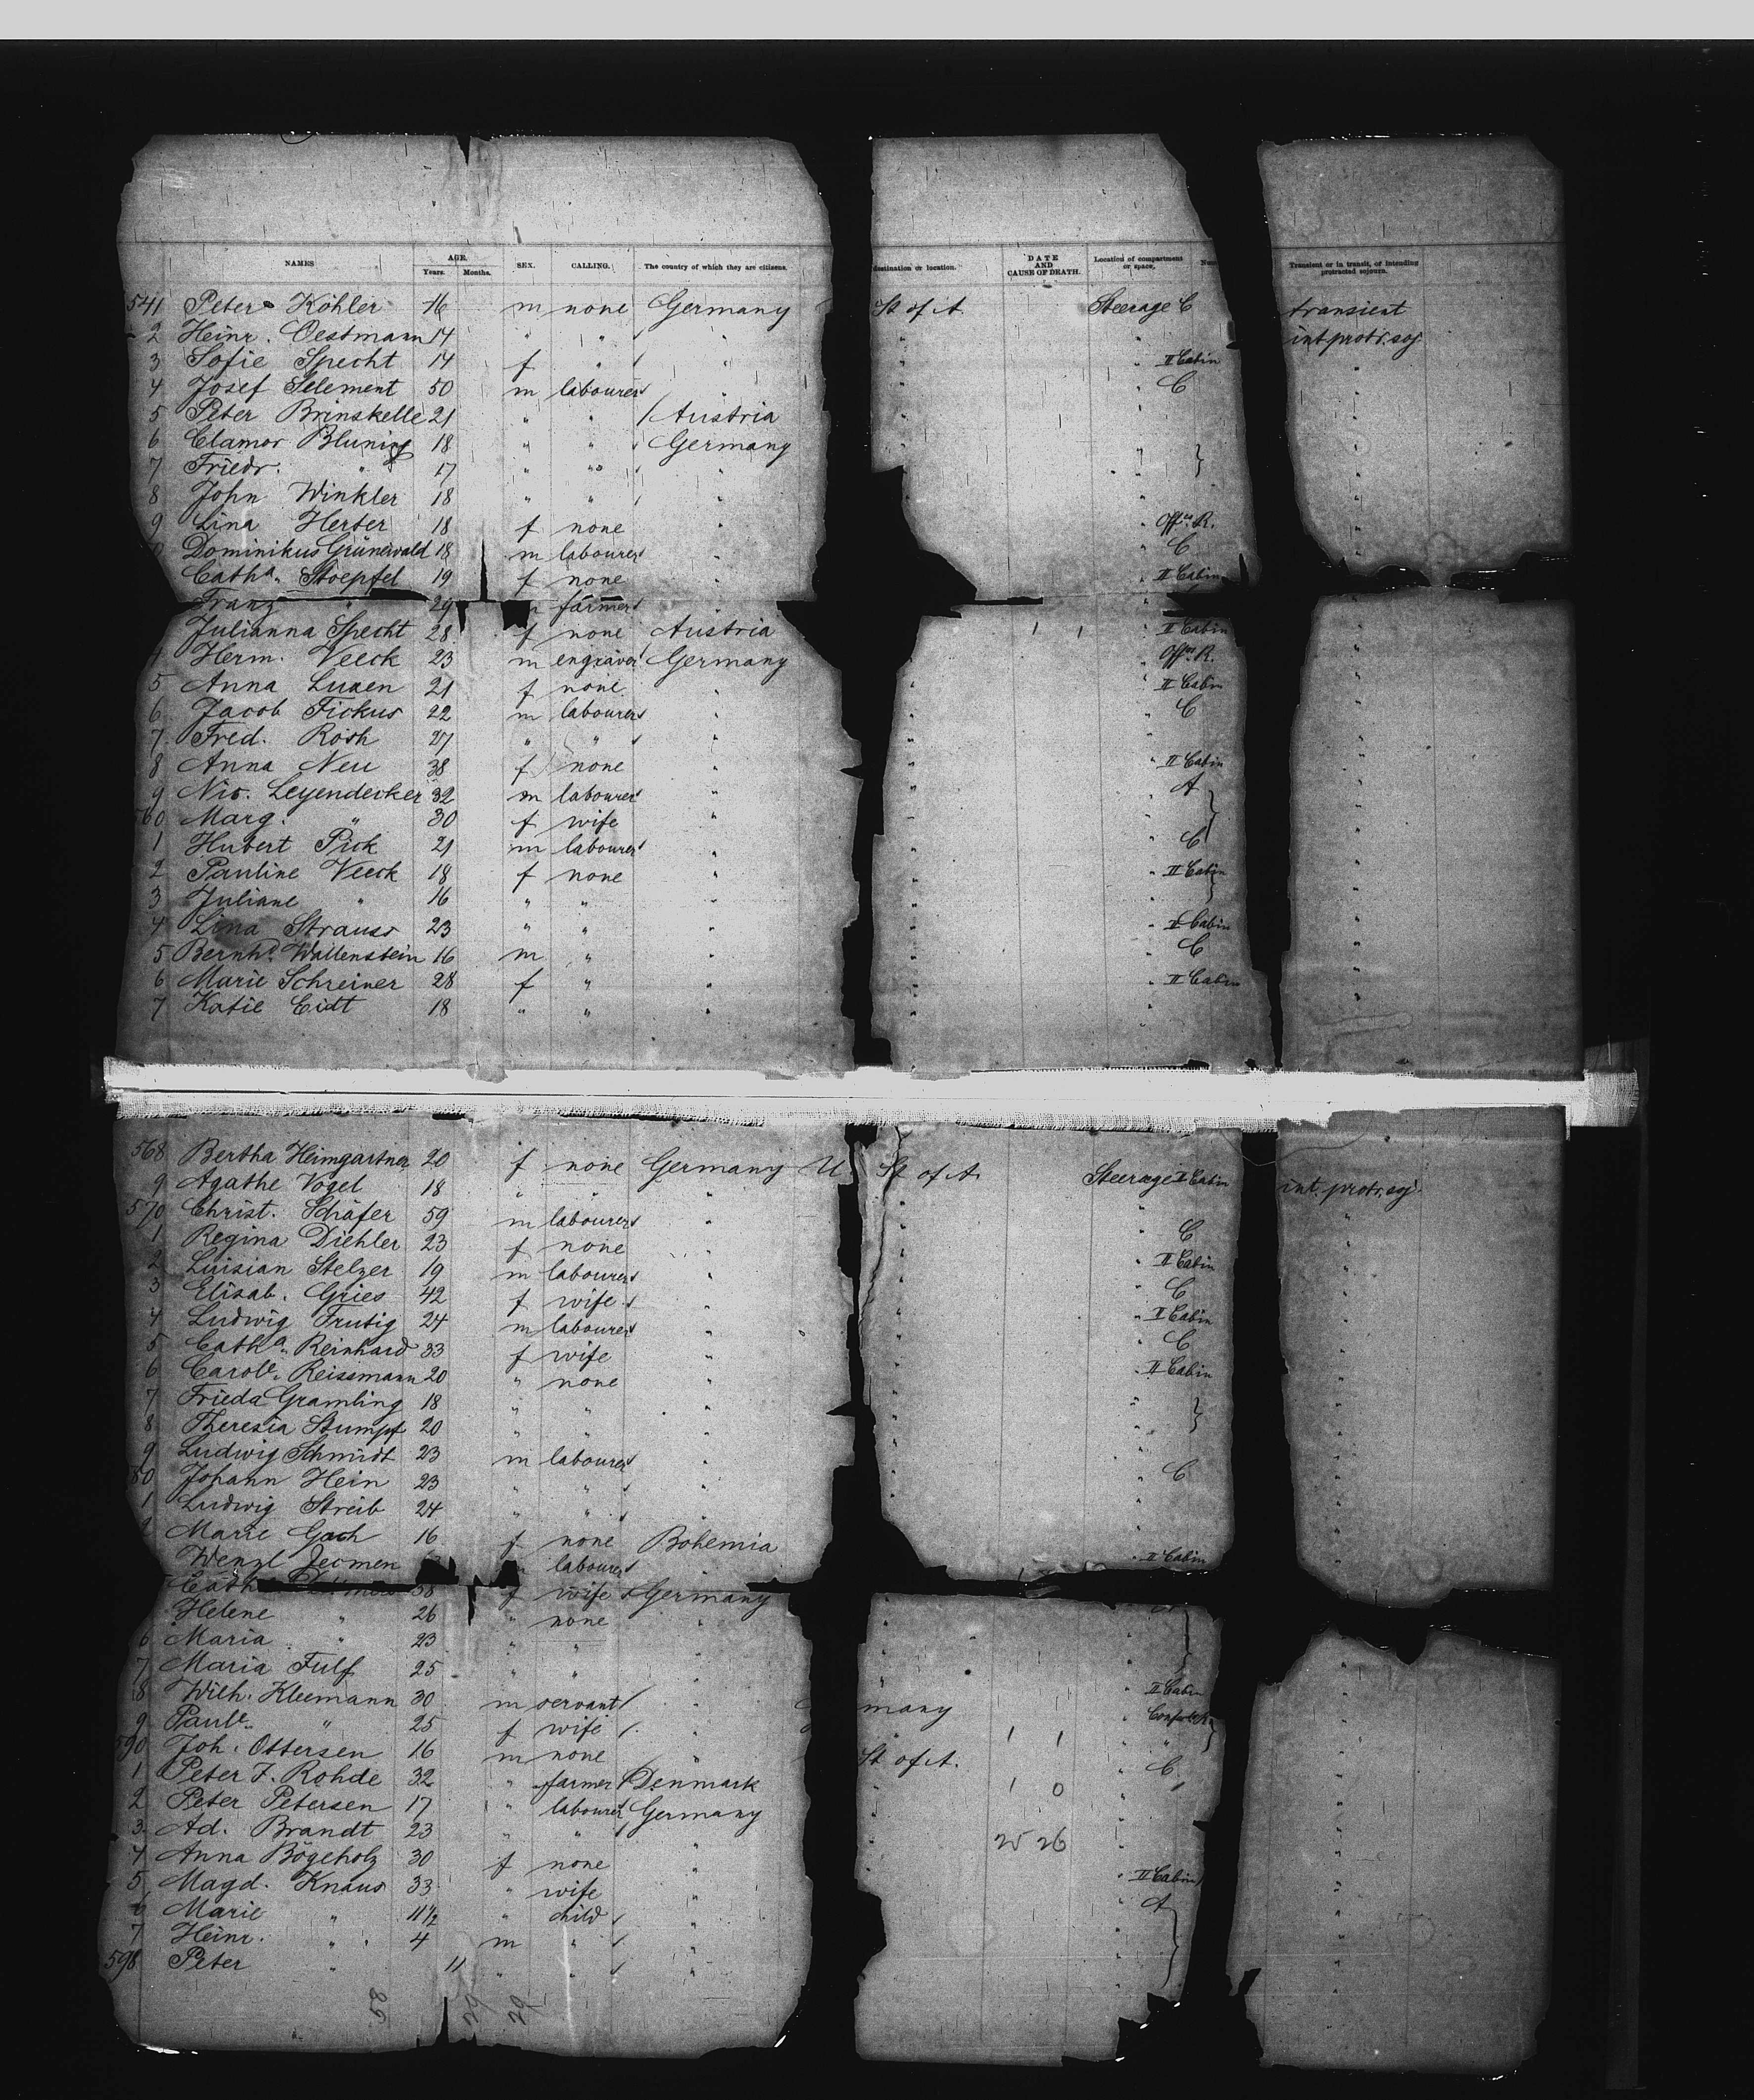 NAMES AGE. Years. Months. SEX. CALLING. The country of which they are citizens. destination or location. DATE AND CAUSE OF DEATH. Location of compartment or space. Transient or in transit, or intending protracted sojourn.
541 Peter Köhler 16 m none Germany St of A. Steerage C transient
2 Heinr. Oestmann 14 " " " " " int. protr. soj.
3 Sofie Specht 14 f " " " " II Cabin "
4 Josef Selement 50 m labourer " " " C "
5 Peter Brinskelle 21 " " Austria " " "
6 Clamor Bluning 18 " " Germany " " "
7 Friedr. " 17 " " " " "
8 John Winkler 18 " " " " "
9 Lina Herter 18 f none " " Offrs R. "
0 Dominikus Grünewald 18 m labourer " " C "
Catha. Stoepfel 19 f none " " II Cabin
Franz " 29 farmer
Julianna Specht 28 f none Austria 1 1 " II Cabin "
4 Herm. Veeck 23 m engraver Germany " " Offrs R. "
5 Anna Luxen 21 f none " " " II Cabin "
6 Jacob Fickus 22 m labourer " " " C "
7 Fred. Rosh 27 " " " " " "
8 Anna Neu 38 f none " " " II Cabin "
9 Nic. Leyendecker 32 m labourer " " " A "
560 Marg. " 30 f wife " " " "
1 Hubert Pick 21 m labourer " " " C "
2 Pauline Veeck 18 f none " " " II Cabin "
3 Juliane " 16 " " " " " "
4 Lina Strauss 23 " " " " " II Cabin "
5 Bernhd. Wallenstein 16 m " " " " C "
6 Marie Schreiner 28 f " " " " II Cabin "
7 Katie Eidt 18 " " " " " "
568 Bertha Heimgartner 20 f none Germany U St of A. Steerage II Cabin int. protr. soj.
9 Agathe Vogel 18 " " " " " "
570 Christ. Schäfer 59 m labourer " " " C "
1 Regina Diehler 23 f none " " " II Cabin "
2 Luisian Stelzer 19 m labourer " " " C "
3 Elisab. Gries 42 f wife " " " II Cabin "
4 Ludwig Frutig 24 m labourer " " " C "
5 Catha. Reinhard 33 f wife " " " II Cabin "
6 Carole. Reissmann 20 " none " " " "
7 Frieda Gramling 18 " " " " " "
8 Theresia Stumpf 20 " " " " " "
9 Ludwig Schmidt 23 m labourer " " " C "
80 Johann Hein 23 " " " " " "
1 Ludwig Streib 24 " " " " " "
2 Marie Gach 16 f none Bohemia " II Cabin "
Wenzl Jecmen labourer
Cath 58 f wife Germany
Helene " 26 " none " " " "
6 Maria " 23 " " " " "
7 Maria Fulf 25 " " " " II Cabin "
8 Wilh. Kleemann 30 m servant " many "
9 Paule. " 25 f wife " 1 1 " "
590 Joh. Ottersen 16 m none " St of A. " C "
1 Peter F. Rohde 32 " farmer Denmark " 1 0 " "
2 Peter Petersen 17 " labourer Germany " " "
3 Ad. Brandt 23 " " " " 25 26 " "
4 Anna Bögeholz 30 f none " " " II Cabin "
5 Magd. Knaus 33 " wife " " A "
6 Marie " 11½ " child " " "
7 Heinr. " 4 m " " " "
598 Peter " 11 " " " " "
58 29 29